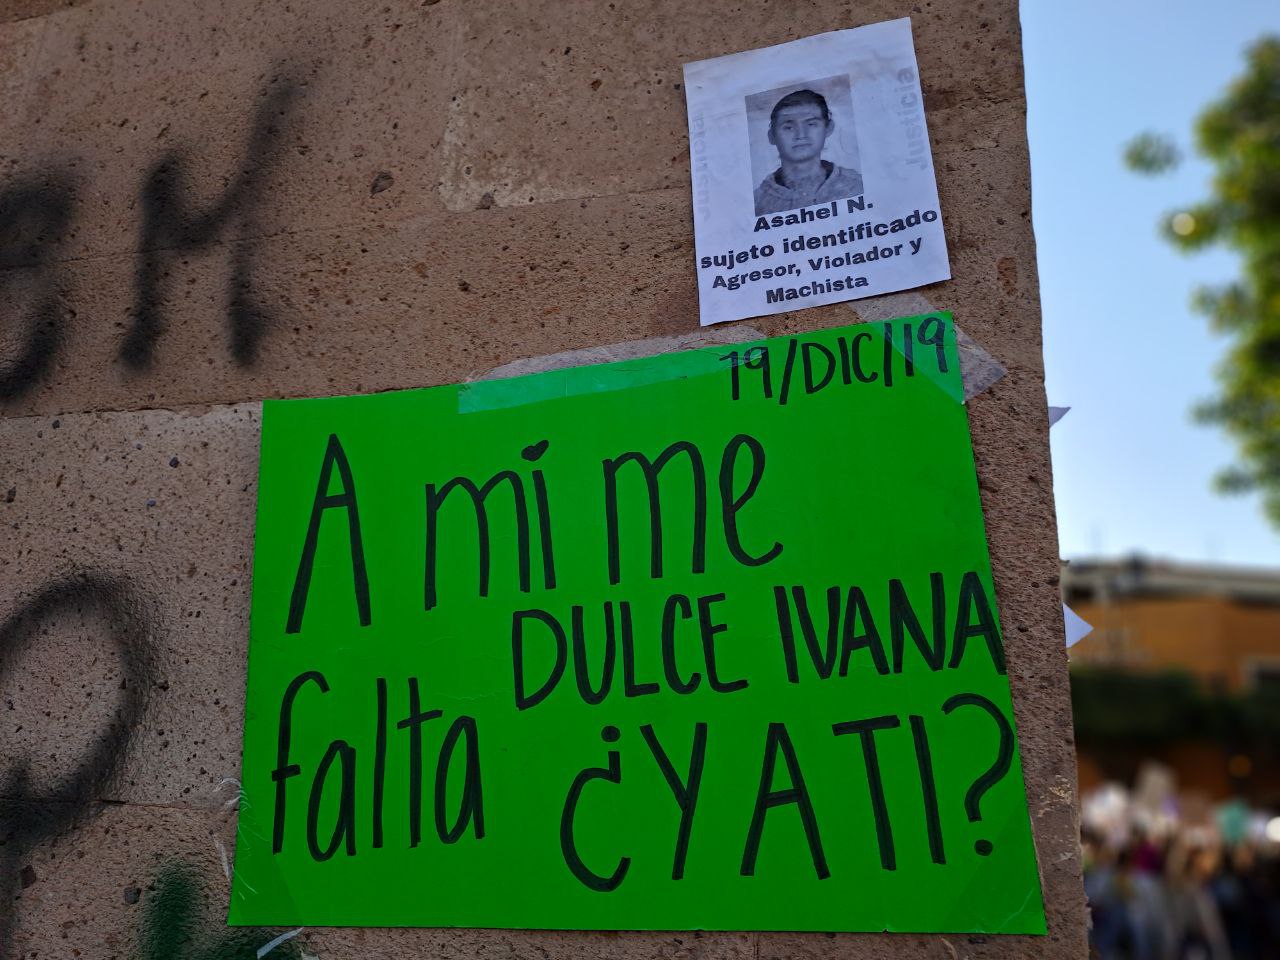 Justicia
Justicia
Asahel N.
sujeto identificado
Agresor, Violador y
Machista
19/DIC/19
A mi me
DULCE IVANA
falta ¿Y A TI?